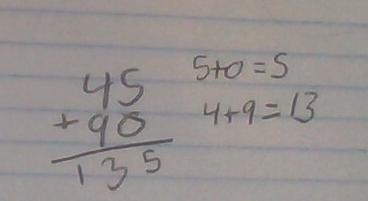 45
+90
135
5+0=5
4+9=13